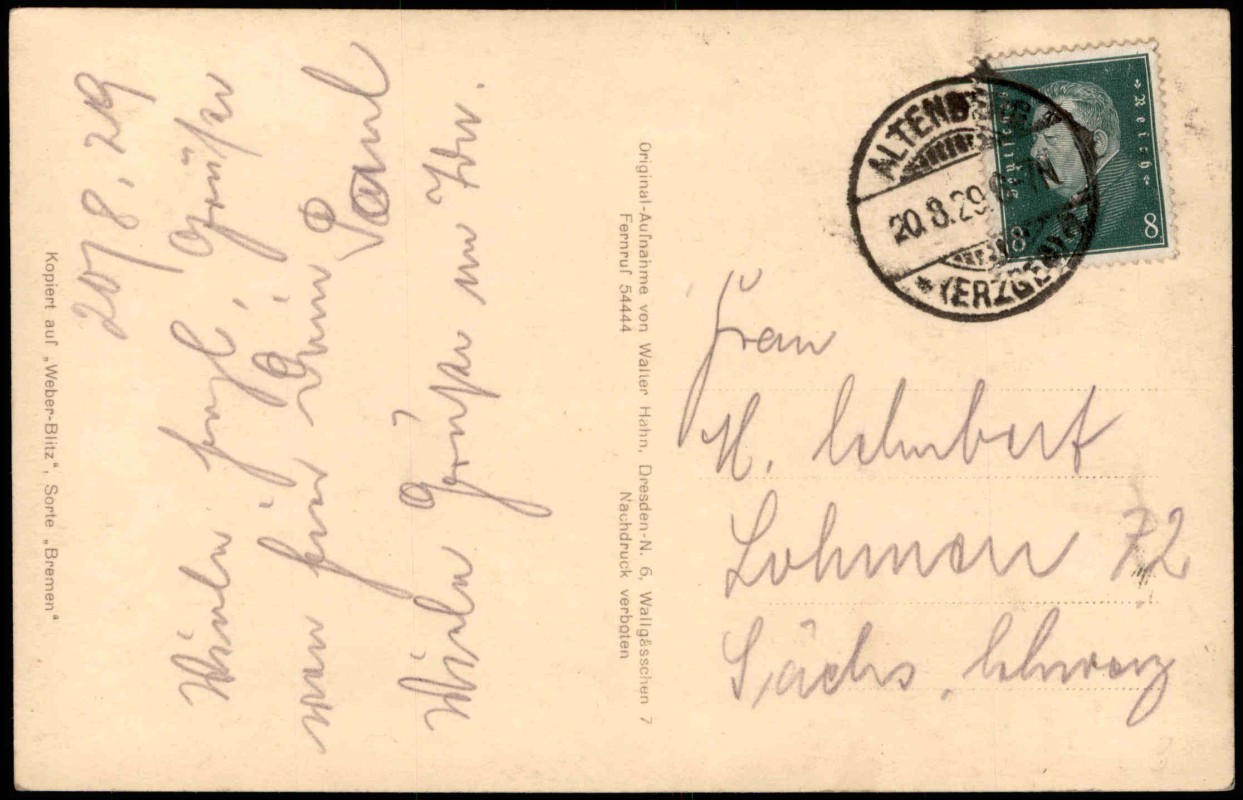 20/8.29
Viele herzl. Grüße
von hier Dein Paul
Viele Grüße von Ida.
Kopiert auf „Weber-Blitz“, Sorte „Bremen“
Original-Aufnahme von Walter Hahn, Dresden-N. 6, Wallgässchen 7
Fernruf 54444 Nachdruck verboten
ALTENBERG
20.8.29.
(ERZGEB
Reich
8
8
Frau
M. Schubert
Lohmen 72
Sächs. Schweiz